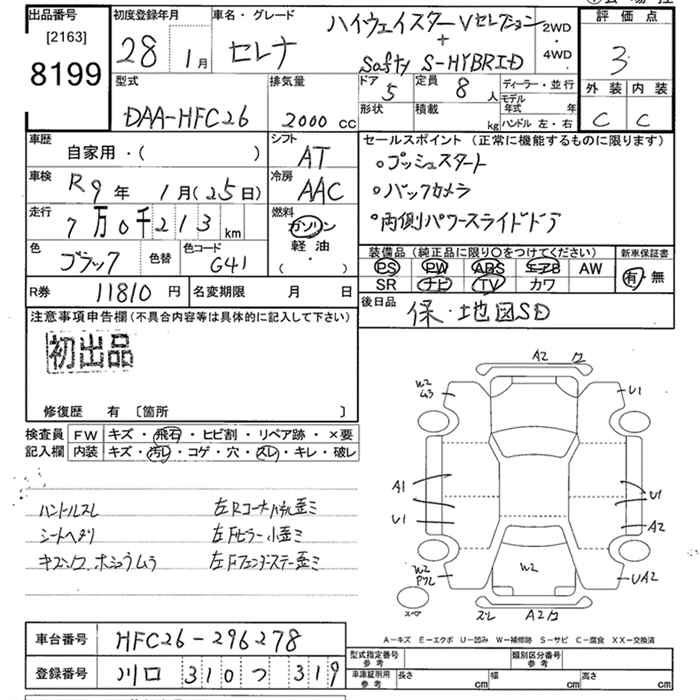 出品番号 [2163] 8199
初度登録年月 28 1月
車名・グレード セレナ ハイウェイスターVセレクション
+
Safty S-HYBRID
2WD・4WD
評価点 3
外装 C 内装 C
型式 DAA-HFC26
排気量 2000cc
ドア 5 形状
定員 8人 積載 kg
ディーラー・並行
モデル年式 年
ハンドル 左・右
車歴 自家用・( )
シフト AT
車検 R9年 1月(25日)
冷房 AAC
走行 7万0千213km
燃料 ガソリン 軽油・( ・ )
色 ブラック 色替
色コード G41
セールスポイント(正常に機能するものに限ります)
○プッシュスタート
○バックカメラ
○両側パワースライドドア
装備品(純正品に限り○をつけてください)
PS PW ABS エアB AW
SR ナビ TV カワ
新車保証書 有・無
R券 11810円 名変期限 月 日
後日品 保・地図SD
注意事項申告欄(不具合内容等は具体的に記入して下さい)
初出品
修復歴 有 〔箇所 〕
検査員記入欄
FW キズ・飛石・ヒビ割・リペア跡・×要
内装 キズ・汚レ・コゲ・穴・スレ・キレ・破レ
ハンドルスレ 左Rコーナーパネル歪ミ
シートヘタリ 左Fピラー小歪ミ
左Fフェンダーステー歪ミ
A2
W2
G3
U1
A1
U1
U1
A2
W2
W2
UA2
スレ A2
A-キズ E-エクボ U-凹み W-補修跡 S-サビ C-腐食 XX-交換済
車台番号 HFC26-296278
登録番号 川口 310 つ 319
型式指定番号 参考
類別区分番号 参考
車庫証明用 参考 長さ cm 幅 cm 高さ cm